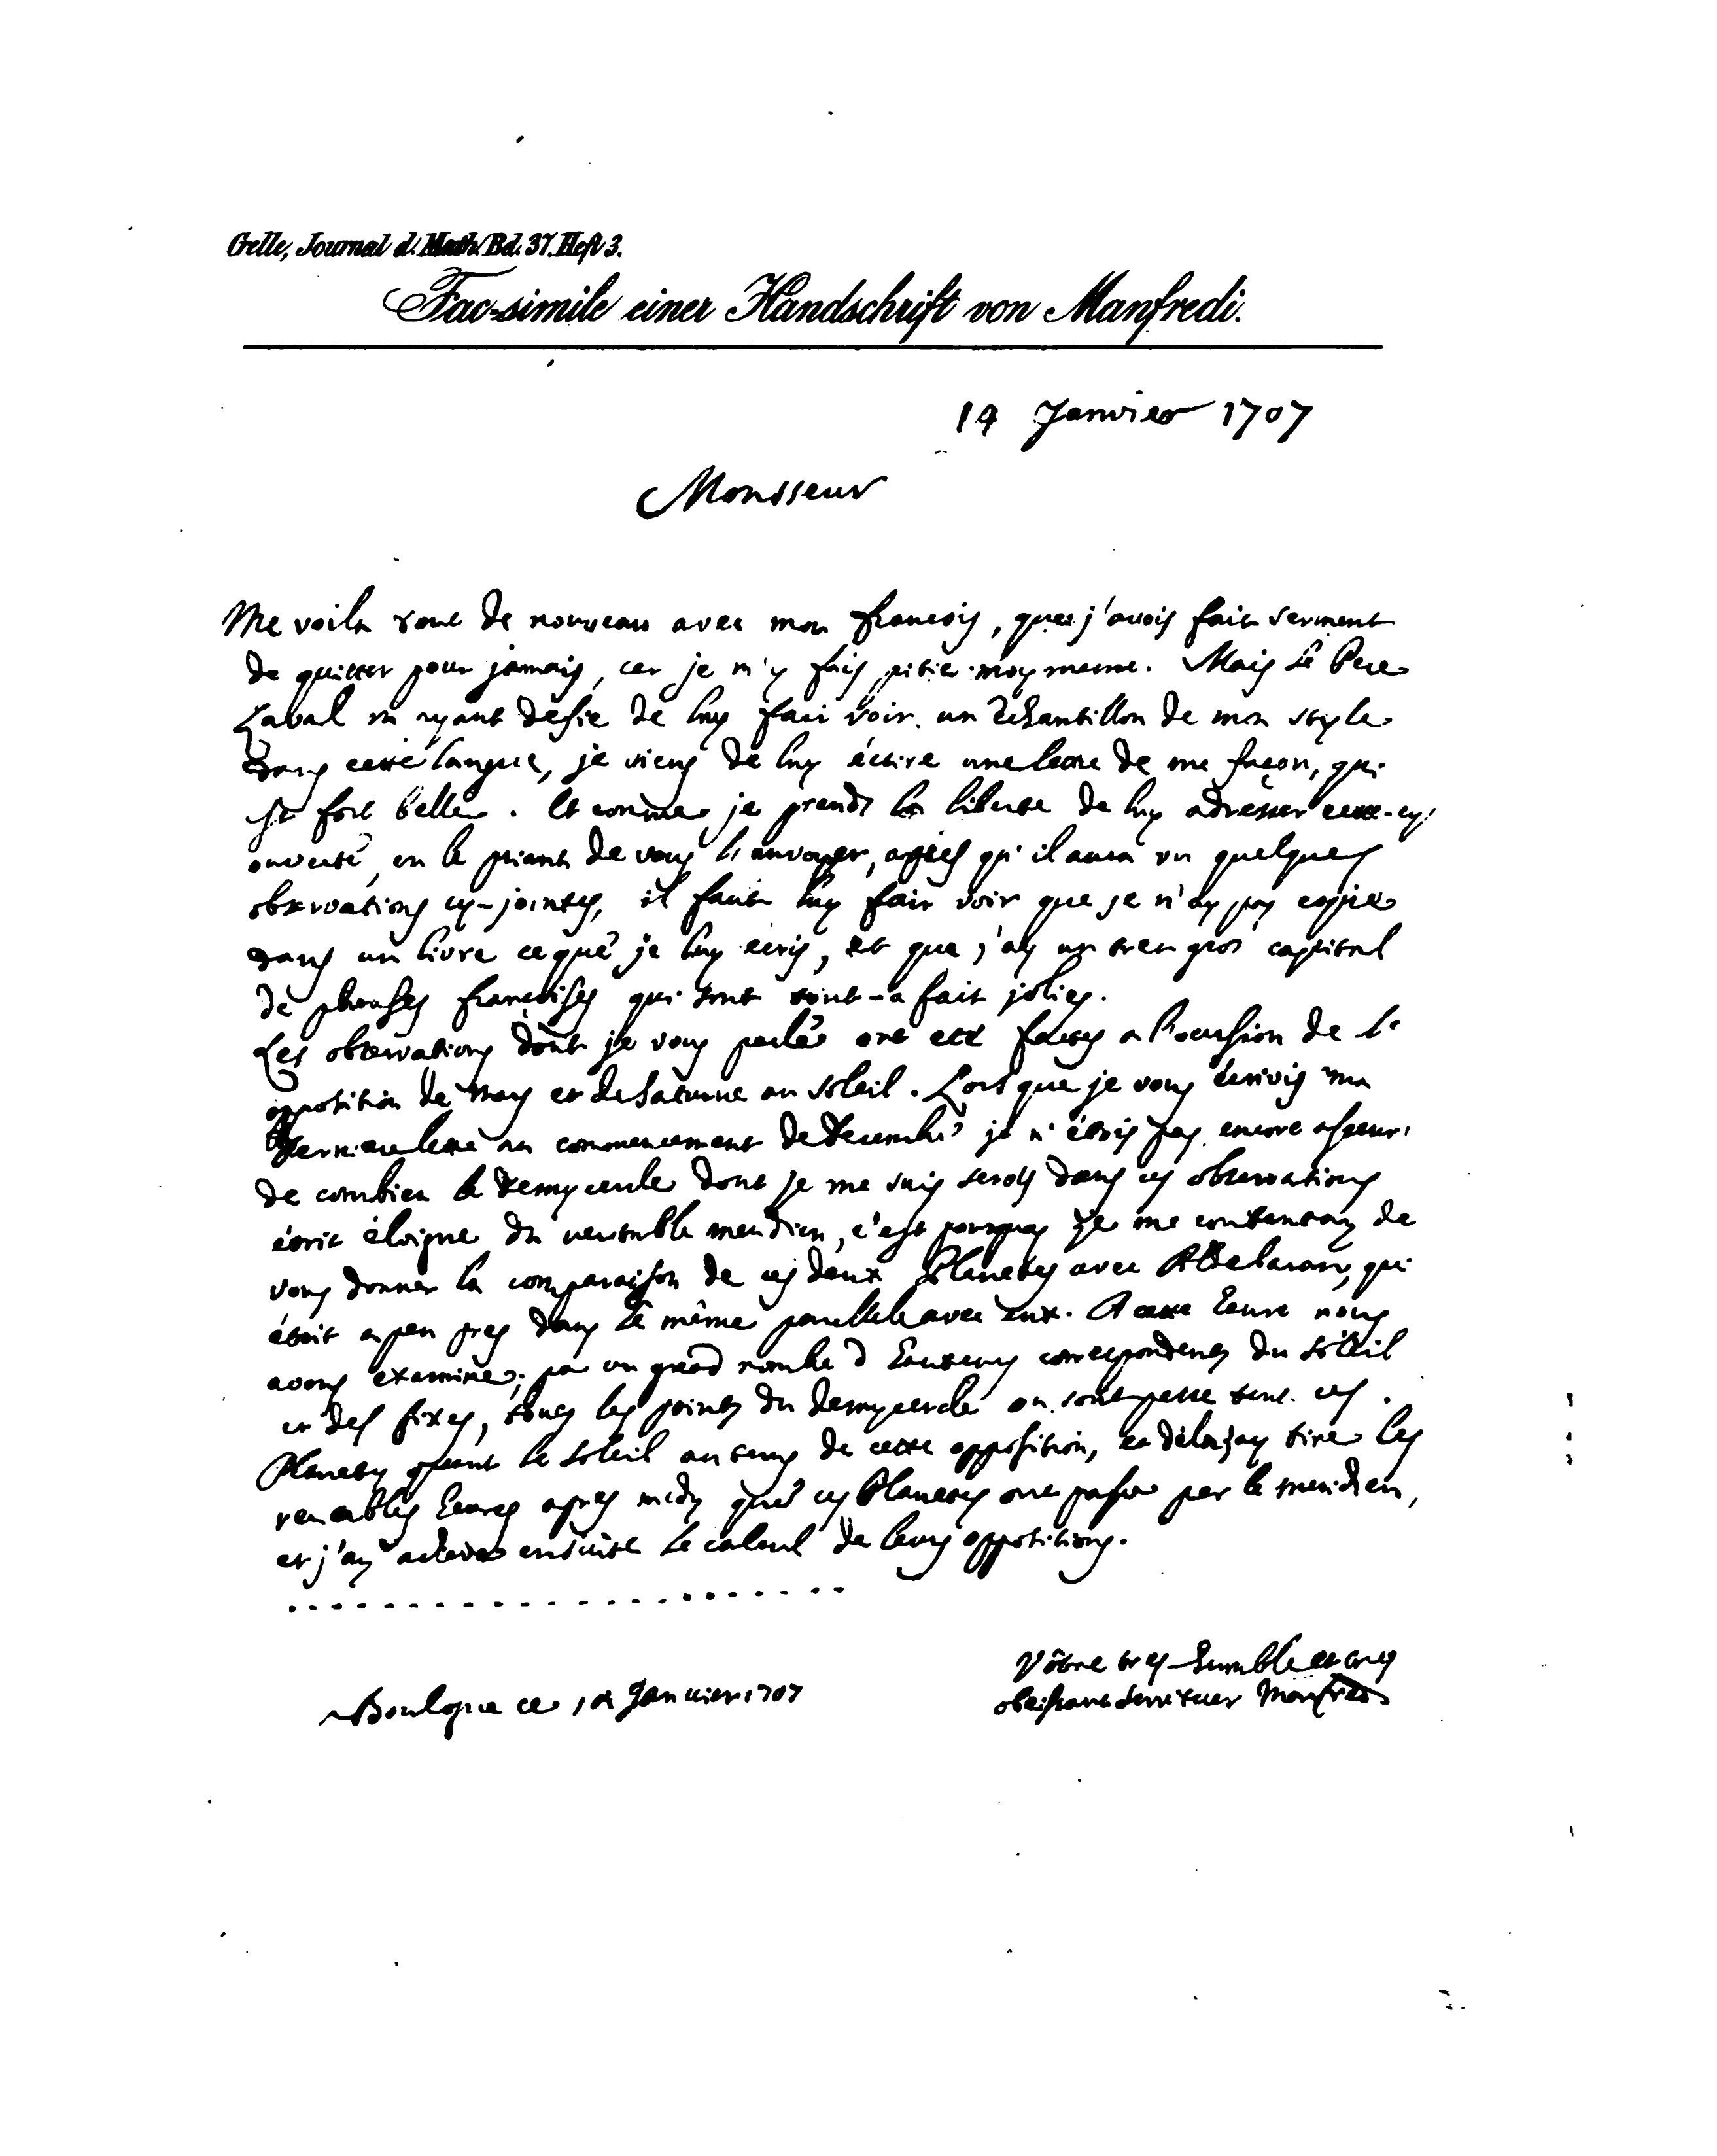 Crelle, Journal d. Math. Bd. 37. Heft 3.
Fac-simile einer Handschrift von Manfredi.
14 Janvier 1707
Monsieur
Me voila tout de nouveau avec mon francois, que j'avois fait serment
de quitter pour jamais, car je m'y fais pitie moy meme. Mais le Pere
Laval m'ayant defie de luy fair voir un echantillon de mon style
dans cette langue, je viens de luy écrire une lettre de ma façon, qui
est fort belle. Et comme je prends la liberte de luy adresser cette-cy
ouverte, en le priant de vous l'envoyer, apres qu'il aura vu quelques
observations cy-jointes, il faut luy fair voir que je n'ay pas copie
dans un livre ce que je luy ecris, et que j'ay un tres gros capital
de phrases francoises qui sont tout-a fait jolies.
Les observations dont je vous parle ont eté faites a l'occasion de l'
opposition de Mars et de Saturne au Soleil. Lors que je vous écrivis ma
derniere lettre au commencement de Decembre je n'étois pas encore asseuré
de combien le demycercle dont je me suis servy dans ces observations
étoit éloigné du veritable meridien, c'est pourquoy je me contentay de
vous donner la comparaison de ces deux Planetes avec Aldebaran, qui
étoit a peu pres dans le même parallele avec eux. A cette heure nous
avons examiné, par un grand nombre d'hauteurs correspondentes du Soleil
et des fixes, tous les points du demycercle ou sont passe tant ces
Planetes quant le Soleil au temps de cette opposition, et de la j'ay tiré les
veritables heures apres midy que ces Planetes ont passe par le meridien,
et j'ay acheve ensuite le calcul de leurs oppositions.
. . . . . . . . . . . . . . . . . . . . .
Vôtre tres-humble et tres
obeissant Serviteur Manfredi
Boulogne ce 14 Janvier 1707